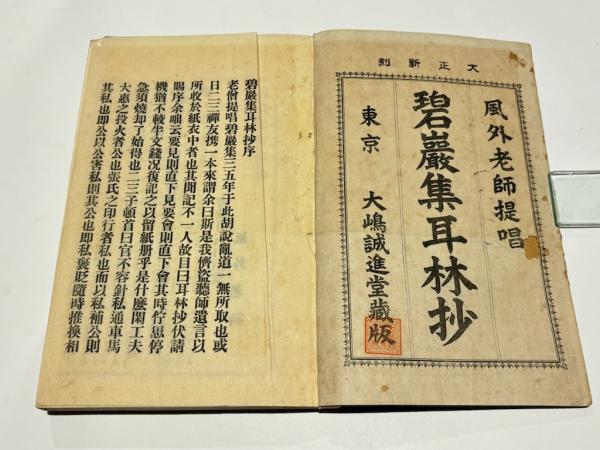 大正新刋
風外老師提唱
碧巖集耳林抄
東京 大嶋誠進堂藏版
碧巖集耳林抄序
老僧提唱碧巖集三五年于此胡說亂道一無所取也或
日二三禪友携一本來謂余曰斯是我儕盜聽師遺言以
所收於紙衣中者也其聞記不一人故目曰耳林抄伏請
賜序余咄云要見則直下見要會則直下會其時佇思停
機猶不較半文錢况復記之以留紙册乎是什麼閑工夫
急須燒却了始得也二三子頓首曰官不容針私通車馬
大惠之投火者公也張氏之印行者私也而以私補公則
其私也即公以公害私則其公也即私褒貶隨時推換相